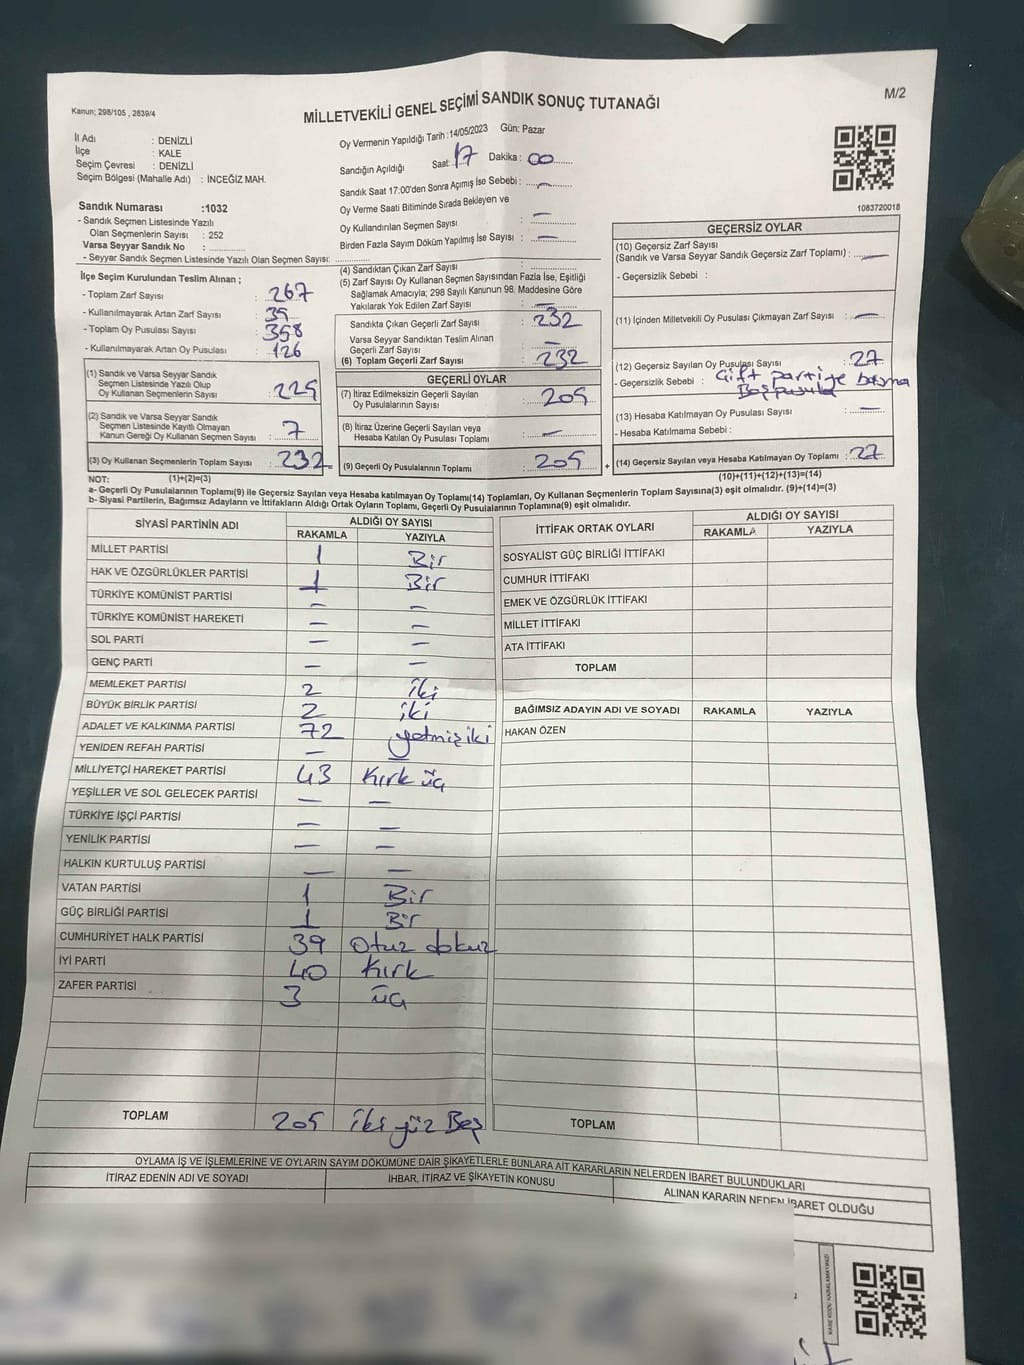 M/2
Kanun; 298/105 , 2839/4
MİLLETVEKİLİ GENEL SEÇİMİ SANDIK SONUÇ TUTANAĞI
İl Adı : DENİZLİ
İlçe : KALE
Seçim Çevresi : DENİZLİ
Seçim Bölgesi (Mahalle Adı) : İNCEĞİZ MAH.
Sandık Numarası :1032
- Sandık Seçmen Listesinde Yazılı
Olan Seçmenlerin Sayısı : 252
Varsa Seyyar Sandık No :
- Seyyar Sandık Seçmen Listesinde Yazılı Olan Seçmen Sayısı:
Oy Vermenin Yapıldığı Tarih :14/05/2023 Gün: Pazar
Sandığın Açıldığı Saat: 17 Dakika : 00
Sandık Saat 17:00'den Sonra Açımış İse Sebebi : —
Oy Verme Saati Bitiminde Sırada Bekleyen ve
Oy Kullandırılan Seçmen Sayısı : —
Birden Fazla Sayım Döküm Yapılmış İse Sayısı : —
1083720018
İlçe Seçim Kurulundan Teslim Alınan ;
- Toplam Zarf Sayısı : 267
- Kullanılmayarak Artan Zarf Sayısı : 35
- Toplam Oy Pusulası Sayısı : 358
- Kullanılmayarak Artan Oy Pusulası : 126
(1) Sandık ve Varsa Seyyar Sandık
Seçmen Listesinde Yazılı Olup
Oy Kullanan Seçmenlerin Sayısı : 225
(2) Sandık ve Varsa Seyyar Sandık
Seçmen Listesinde Kayıtlı Olmayan
Kanun Gereği Oy Kullanan Seçmen Sayısı : 7
(3) Oy Kullanan Seçmenlerin Toplam Sayısı : 232 =
(4) Sandıktan Çıkan Zarf Sayısı :
(5) Zarf Sayısı Oy Kullanan Seçmen Sayısından Fazla İse, Eşitliği
Sağlamak Amacıyla; 298 Sayılı Kanunun 98. Maddesine Göre
Yakılarak Yok Edilen Zarf Sayısı : —
Sandıkta Çıkan Geçerli Zarf Sayısı : 232
Varsa Seyyar Sandıktan Teslim Alınan
Geçerli Zarf Sayısı : —
(6) Toplam Geçerli Zarf Sayısı : 232
GEÇERLİ OYLAR
(7) İtiraz Edilmeksizin Geçerli Sayılan
Oy Pusulalarının Sayısı : 205
(8) İtiraz Üzerine Geçerli Sayılan veya
Hesaba Katılan Oy Pusulası Toplamı : —
(9) Geçerli Oy Pusulalarının Toplamı : 205 +
GEÇERSİZ OYLAR
(10) Geçersiz Zarf Sayısı
(Sandık ve Varsa Seyyar Sandık Geçersiz Zarf Toplamı) : —
- Geçersizlik Sebebi :
(11) İçinden Milletvekili Oy Pusulası Çıkmayan Zarf Sayısı : —
(12) Geçersiz Sayılan Oy Pusulası Sayısı : 27
- Geçersizlik Sebebi : Çift partiye basma
Boş pusula
(13) Hesaba Katılmayan Oy Pusulası Sayısı : —
- Hesaba Katılmama Sebebi :
(14) Geçersiz Sayılan veya Hesaba Katılmayan Oy Toplamı : 27
NOT: (1)+(2)=(3)
(10)+(11)+(12)+(13)=(14)
a- Geçerli Oy Pusulalarının Toplamı(9) ile Geçersiz Sayılan veya Hesaba katılmayan Oy Toplamı(14) Toplamları, Oy Kullanan Seçmenlerin Toplam Sayısına(3) eşit olmalıdır. (9)+(14)=(3)
b- Siyasi Partilerin, Bağımsız Adayların ve İttifakların Aldığı Ortak Oyların Toplamı, Geçerli Oy Pusulalarının Toplamına(9) eşit olmalıdır.
SİYASİ PARTİNİN ADI ALDIĞI OY SAYISI
RAKAMLA YAZIYLA
MİLLET PARTİSİ 1 Bir
HAK VE ÖZGÜRLÜKLER PARTİSİ 1 Bir
TÜRKİYE KOMÜNİST PARTİSİ — —
TÜRKİYE KOMÜNİST HAREKETİ — —
SOL PARTİ — —
GENÇ PARTİ — —
MEMLEKET PARTİSİ 2 iki
BÜYÜK BİRLİK PARTİSİ 2 iki
ADALET VE KALKINMA PARTİSİ 72 yetmiş iki
YENİDEN REFAH PARTİSİ — —
MİLLİYETÇİ HAREKET PARTİSİ 43 Kırk üç
YEŞİLLER VE SOL GELECEK PARTİSİ — —
TÜRKİYE İŞÇİ PARTİSİ — —
YENİLİK PARTİSİ — —
HALKIN KURTULUŞ PARTİSİ — —
VATAN PARTİSİ 1 Bir
GÜÇ BİRLİĞİ PARTİSİ 1 Bir
CUMHURİYET HALK PARTİSİ 39 Otuz dokuz
İYİ PARTİ 40 Kırk
ZAFER PARTİSİ 3 üç
TOPLAM 205 iki yüz Beş
İTTİFAK ORTAK OYLARI ALDIĞI OY SAYISI
RAKAMLA YAZIYLA
SOSYALİST GÜÇ BİRLİĞİ İTTİFAKI
CUMHUR İTTİFAKI
EMEK VE ÖZGÜRLÜK İTTİFAKI
MİLLET İTTİFAKI
ATA İTTİFAKI
TOPLAM
BAĞIMSIZ ADAYIN ADI VE SOYADI RAKAMLA YAZIYLA
HAKAN ÖZEN
TOPLAM
OYLAMA İŞ VE İŞLEMLERİNE VE OYLARIN SAYIM DÖKÜMÜNE DAİR ŞİKAYETLERLE BUNLARA AİT KARARLARIN NELERDEN İBARET BULUNDUKLARI
İTİRAZ EDENİN ADI VE SOYADI İHBAR, İTİRAZ VE ŞİKAYETİN KONUSU ALINAN KARARIN NEDEN İBARET OLDUĞU